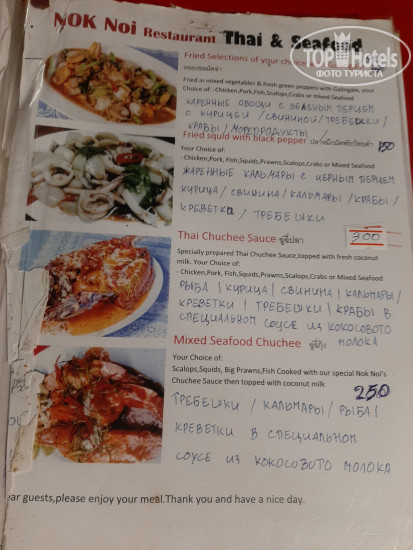 NOK Noi Restaurant Thai & Seafood
TOP Hotels
ФОТО ТУРИСТА
Fried Selections of your choice
Fried in mixed vegetables & fresh green peppers with Galingale, your
Choice of: -Chicken,Pork,Fish,Scalops,Crabs or mixed Seafood
ЖАРЕННЫЕ ОВОЩИ С ЗЕЛЕНЫМ ПЕРЦЕМ
С КУРИЦЕЙ / СВИНИНОЙ / ТРЕБЕШКИ /
КРАБЫ / МОРЕПРОДУКТЫ /
Fried squid with black pepper 150
Your Choice of:
- Chicken,Pork,Fish,Squids,Prawns,Scalops,Crabs or Mixed Seafood
ЖАРЕННЫЕ КАЛЬМАРЫ С ЧЕРНЫМ ПЕРЦЕМ
КУРИЦА / СВИНИНА / КАЛЬМАРЫ / КРАБЫ /
КРЕВЕТКИ / ТРЕБЕШКИ
300
Thai Chuchee Sauce ชูชี่ปลา
Specially prepared Thai Chuchee Sauce,topped with fresh coconut
milk. Your Choice of:
- Chicken,Pork, Fish,Squids,Prawns,Scalops,Crabs or Mixed Seafood
РЫБА | КУРИЦА | СВИНИНА | КАЛЬМАРЫ /
КРЕВЕТКИ | ТРЕБЕШКИ | КРАБЫ В
СПЕЦИАЛЬНОМ СОУСЕ ИЗ КОКОСОВОТО
МОЛОКА
Mixed Seafood Chuchee ชูชี่กุ้ง
Your Choice of:
Scalops,Squids, Big Prawns,Fish Cooked with our special Nok Noi's
Chuchee Sauce then topped with coconut milk 250
ТРЕБЕШКИ / КАЛЬМАРЫ / РЫБА |
КРЕВЕТКИ В СПЕЦИАЛЬНОМ
СОУСЕ ИЗ КОКОСОВОТО МОЛОКА
ear guests,please enjoy your meal.Thank you and have a nice day.